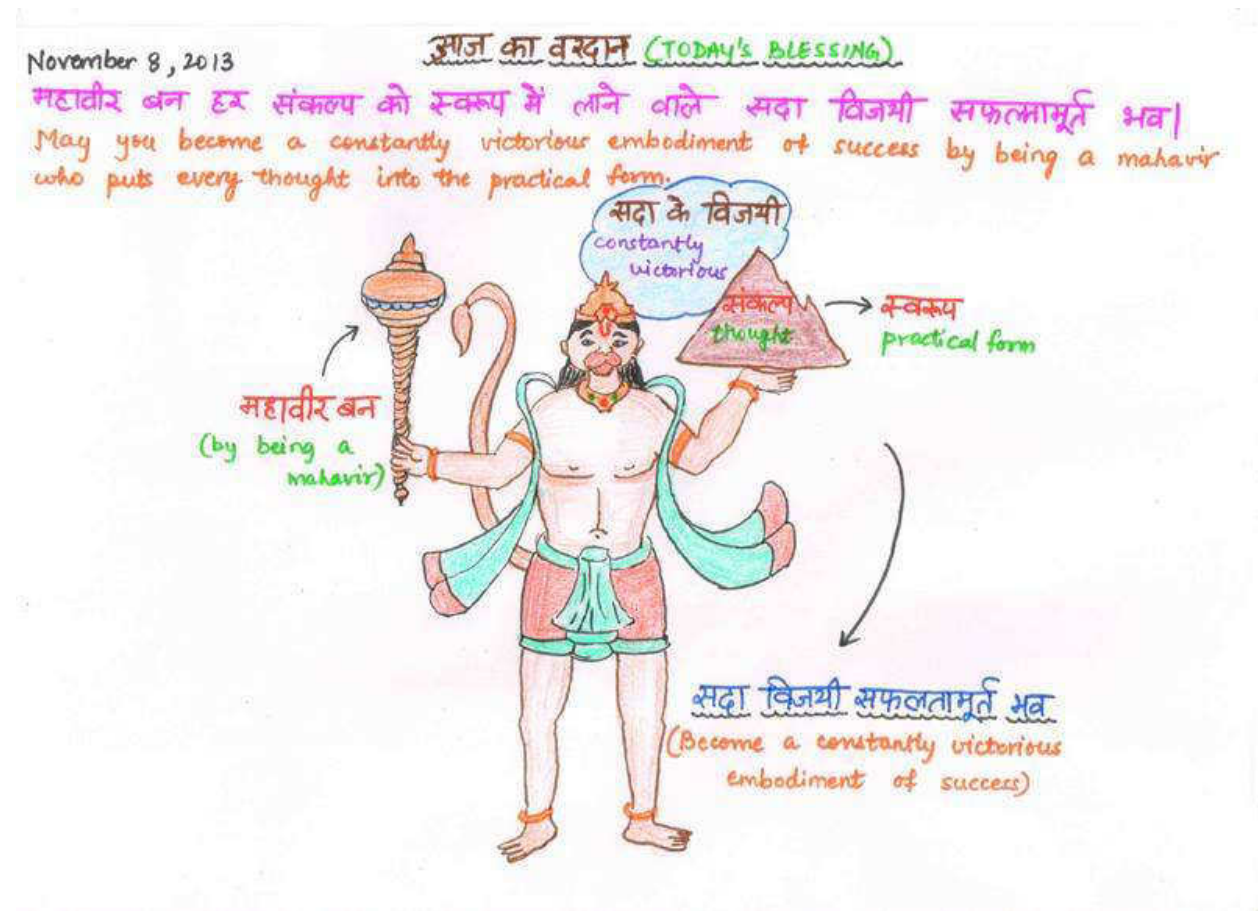 November 8, 2013
आज का वरदान (TODAY'S BLESSING)
महावीर बन हर संकल्प को स्वरूप में लाने वाले सदा विजयी सफलतामूर्त भव।
May you become a constantly victorious embodiment of success by being a mahavir
who puts every thought into the practical form.
सदा के विजयी
constantly
victorious
संकल्प
thought
स्वरूप
practical form
महावीर बन
(by being a
mahavir)
सदा विजयी सफलतामूर्त भव
(Become a constantly victorious
embodiment of success)